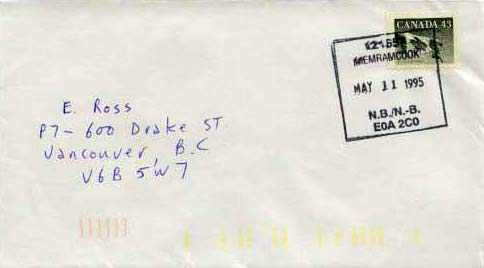 CANADA 43
MEMRAMCOOK
MAY 11 1995
N.B./N.-B.
E0A 2C0
E. Ross
P7- 600 Drake ST.
Vancouver, B.C
V6B 5W7